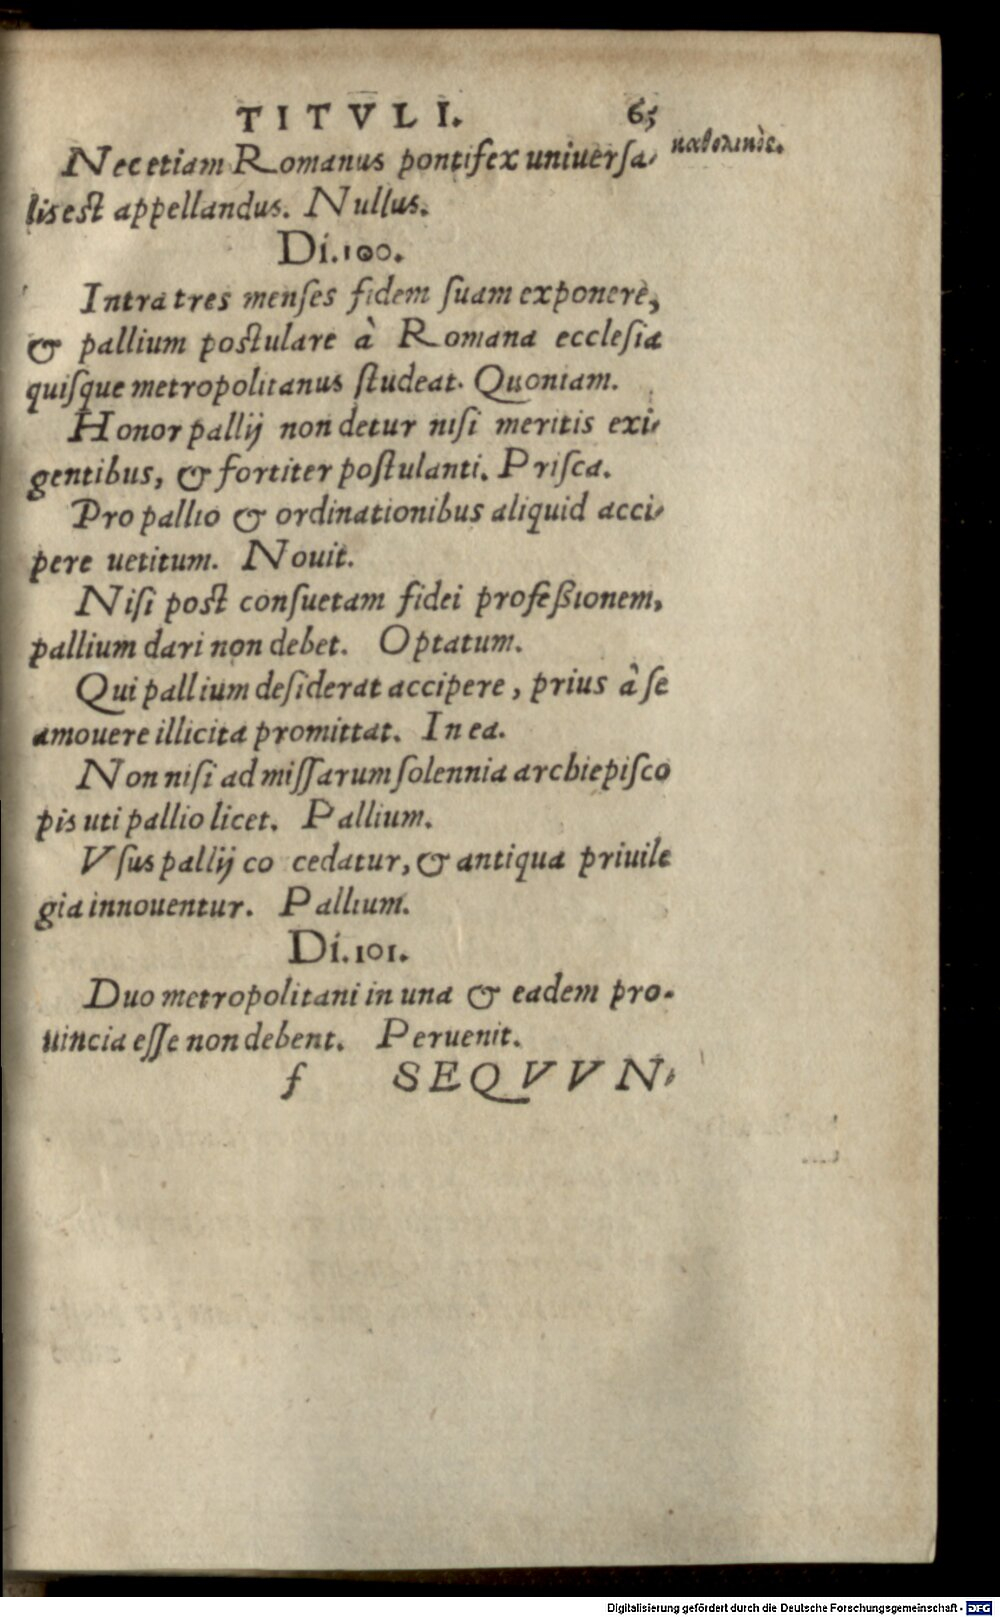 TITVLI. 65
Nec etiam Romanus pontifex uniuersa- καθολικὸς.
lis est appellandus. Nullus.
Di.100.
Intra tres menses fidem suam exponere,
& pallium postulare à Romana ecclesia
quisque metropolitanus studeat. Quoniam.
Honor pallij non detur nisi meritis exi-
gentibus, & fortiter postulanti. Prisca.
Pro pallio & ordinationibus aliquid acci-
pere uetitum. Nouit.
Nisi post consuetam fidei profeßionem,
pallium dari non debet. Optatum.
Qui pallium desiderat accipere, prius à se
amouere illicita promittat. In ea.
Non nisi ad missarum solennia archiepisco
pis uti pallio licet. Pallium.
Vsus pallij co cedatur, & antiqua priuile
gia innouentur. Pallium.
Di.101.
Duo metropolitani in una & eadem pro-
uincia esse non debent. Peruenit.
f SEQVVN-
Digitalisierung gefördert durch die Deutsche Forschungsgemeinschaft - DFG